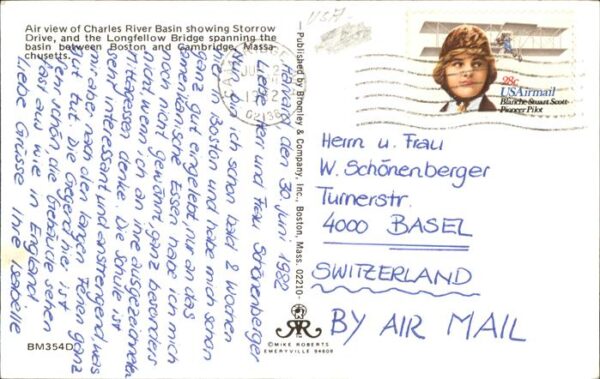 Air view of Charles River Basin showing Storrow
Drive, and the Longfellow Bridge spanning the
basin between Boston and Cambridge, Massa-
chusetts.
Harvard den 30. Juni 1982
Liebe Herr und Frau Schönenberger
Nun bin ich schon bald 2 Wochen
hier in Boston und habe mich schon
ganz gut eingelebt, nur an das
amerikanische Essen habe ich mich
noch nicht gewöhnt ganz besonders
nicht wenn ich an Ihre ausgezeichneten
Mittagessen denke. Die Schule ist
sehr interessant und anstrengend, was
mir aber nach den langen Ferien ganz
gut tut. Die Gegend hier ist
sehr schön, die Gebäude sehen
fast aus wie in England
Liebe Grüsse Ihre Isabelle
BM354D
— Published by Bromley & Company, Inc., Boston, Mass. 02210 —
© MIKE ROBERTS
EMERYVILLE 94608
USA
1982
02138
28c
USAirmail
Blanche Stuart Scott
Pioneer Pilot
Herrn u. Frau
W. Schönenberger
Turnerstr.
4000 BASEL
SWITZERLAND
BY AIR MAIL